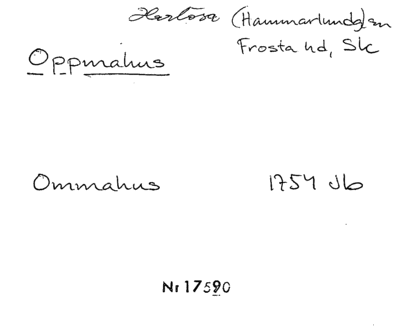 Hurlösa (Hammarlunda) sn
Frosta hd, Sk
Oppmahus
Ommahus 1754 Jb
Nr 17590